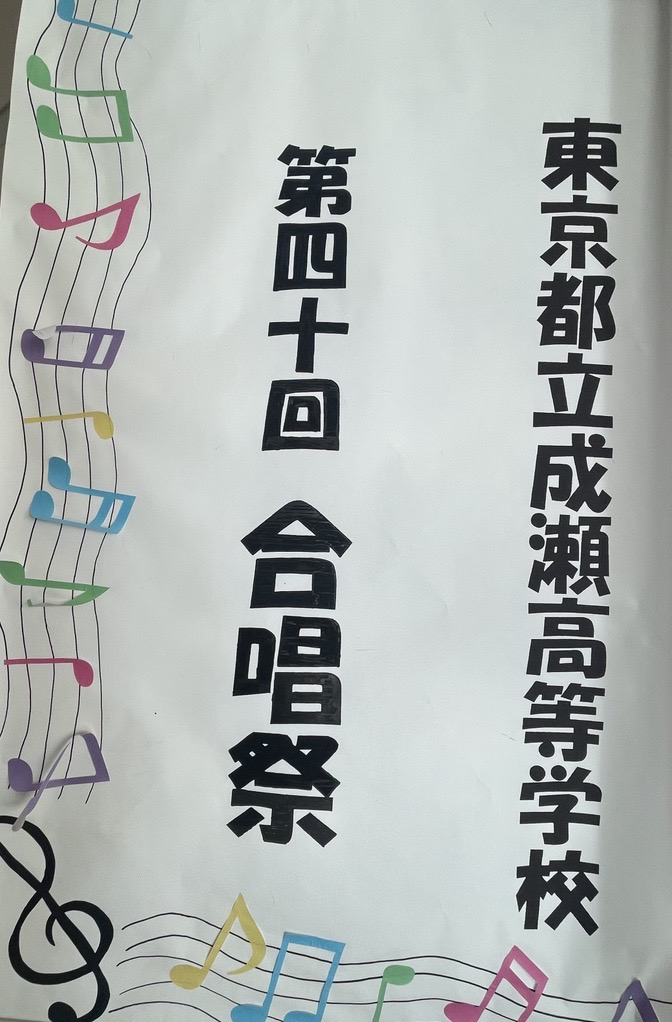 東京都立成瀬高等学校
第四十回 合唱祭